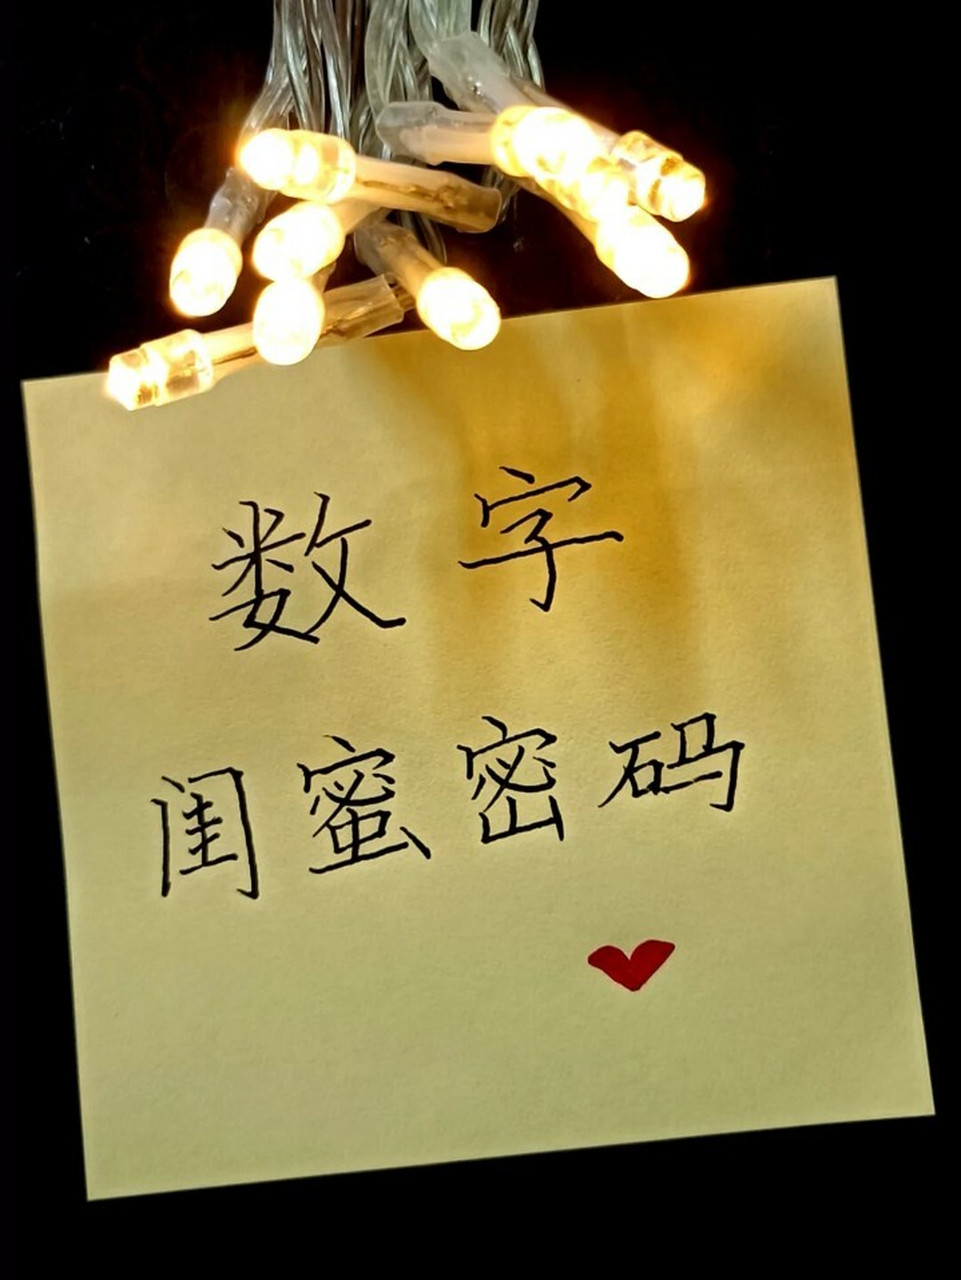 数字
闺蜜密码